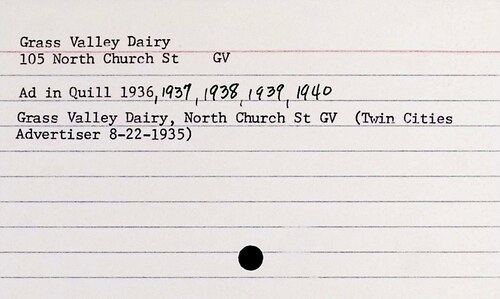 Grass Valley Dairy
105 North Church St GV
Ad in Quill 1936, 1937, 1938, 1939, 1940
Grass Valley Dairy, North Church St GV (Twin Cities
Advertiser 8-22-1935)